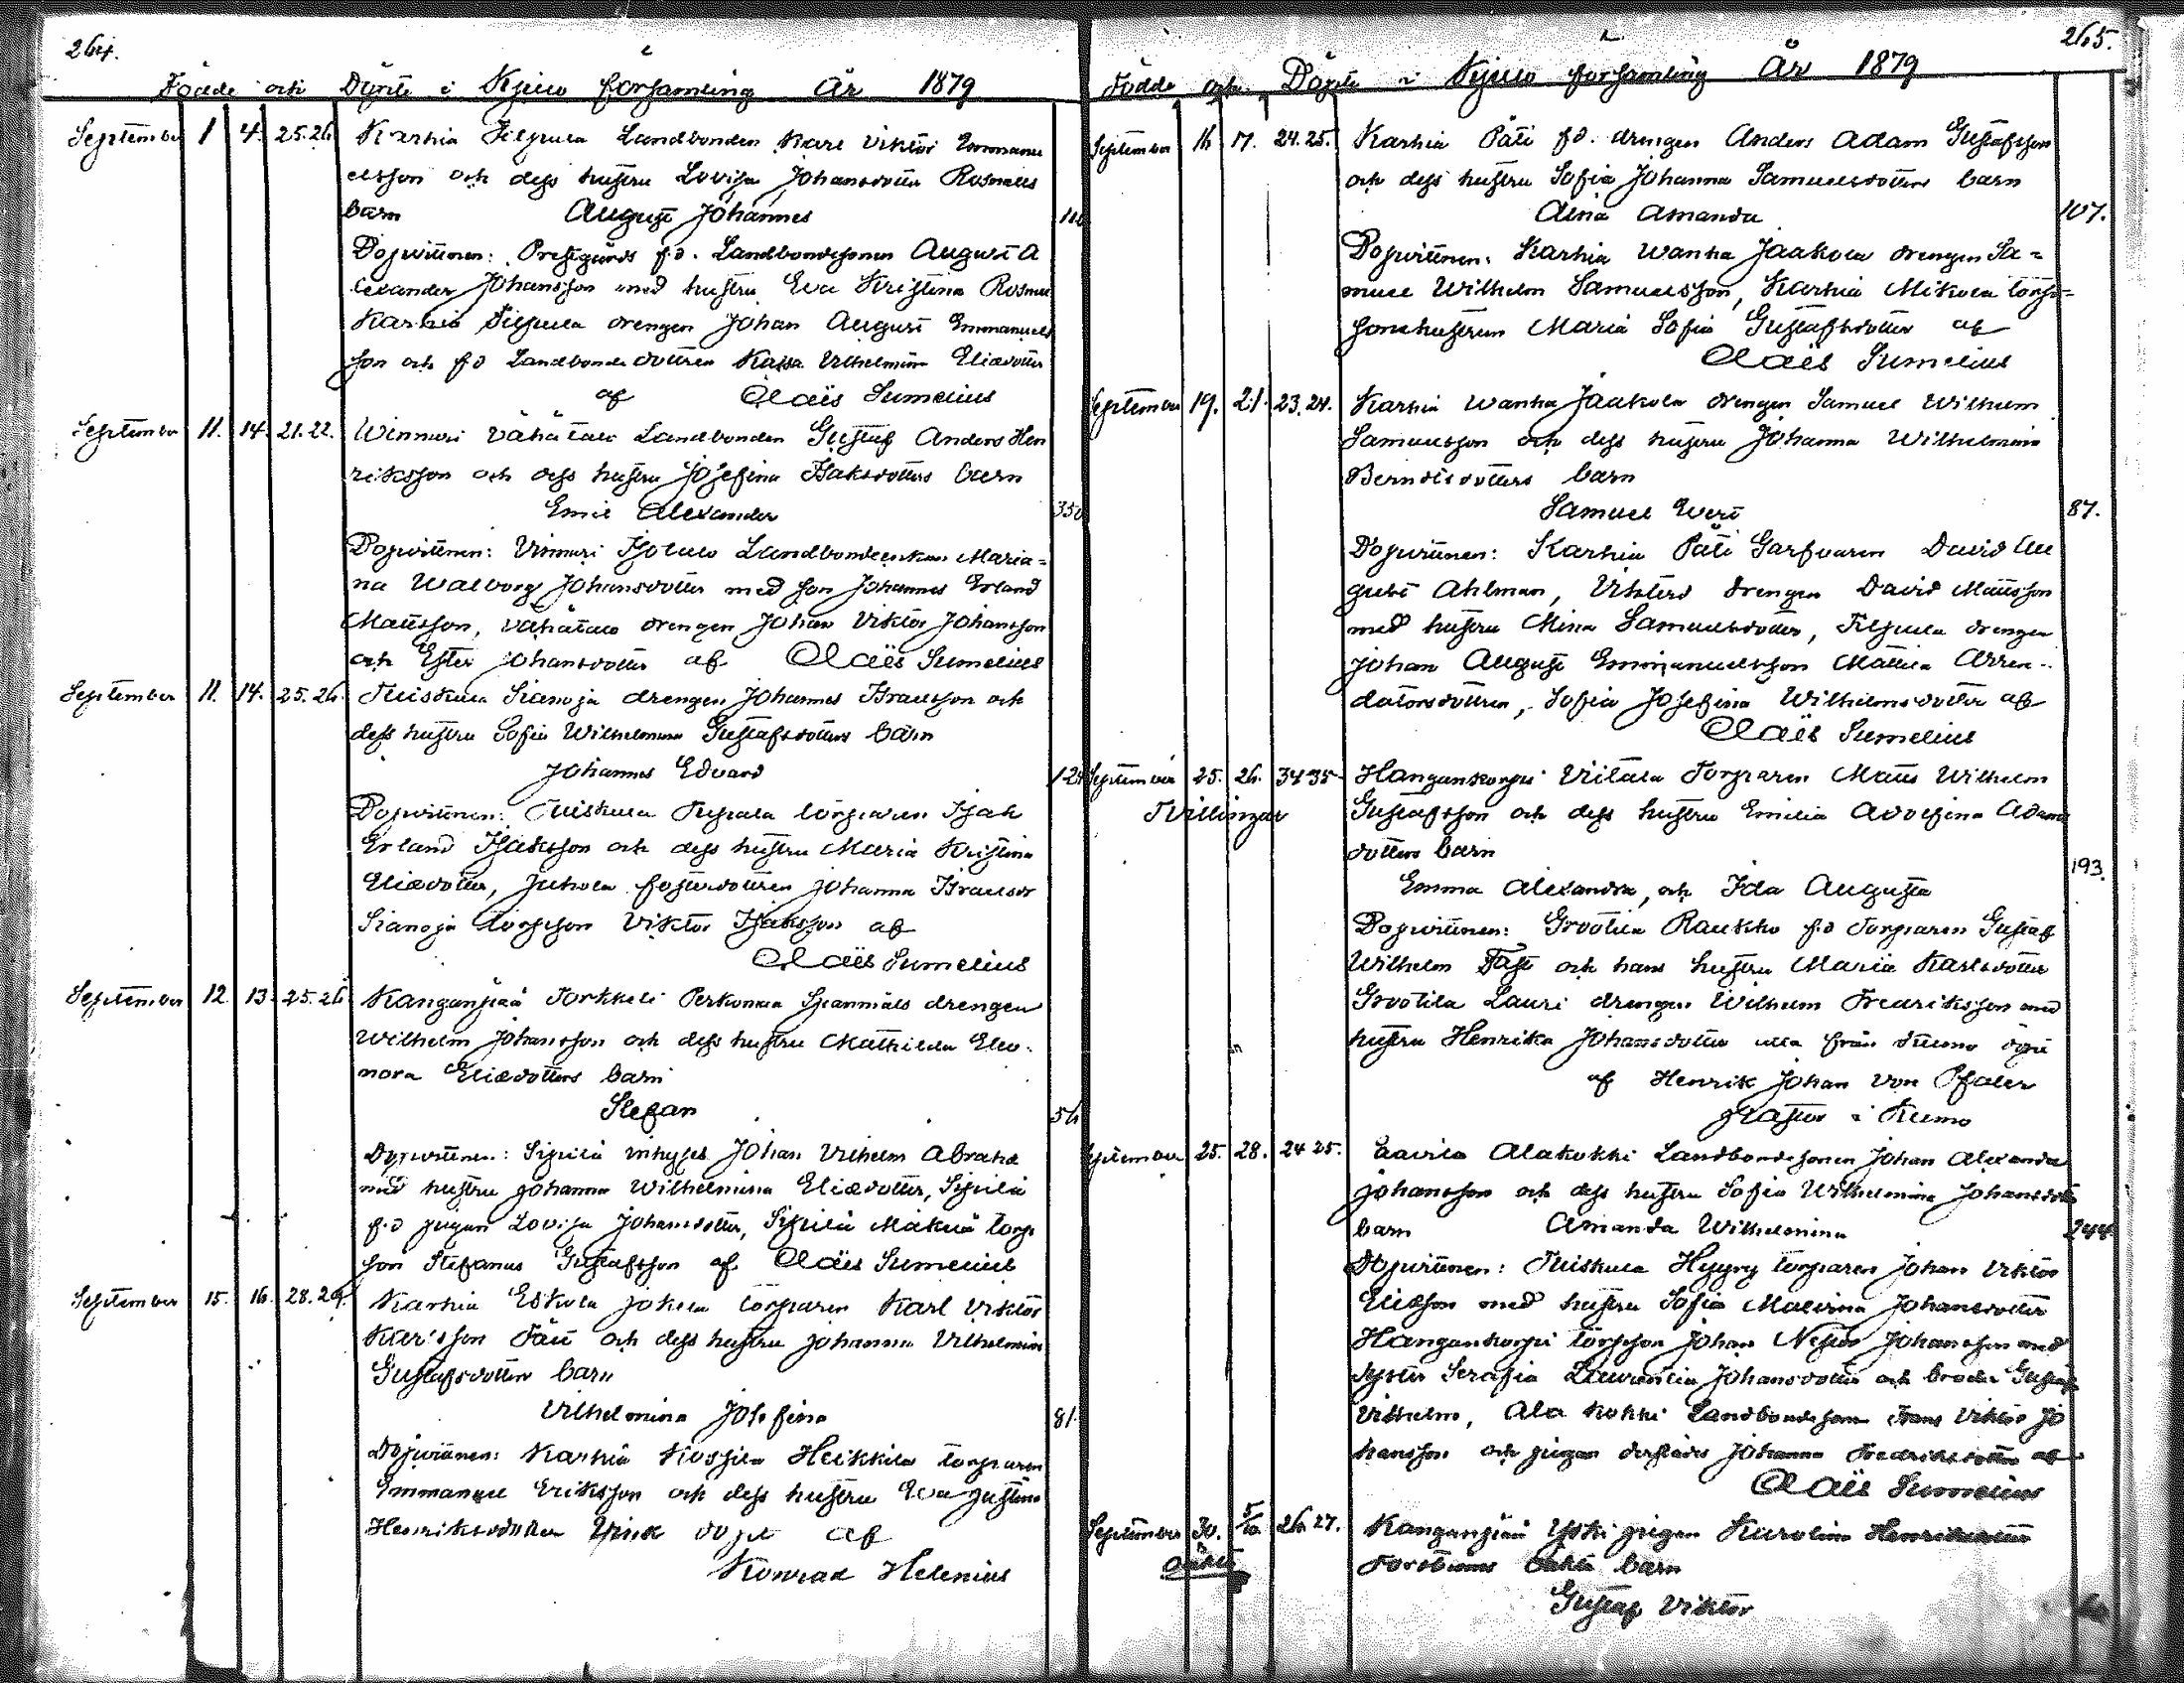 264.
Födde och Döpte i Kjulo församling År 1879
September 1 4. 25.26 Karhia Filpula Landbonden Karl Viktor Emmanu
elsson och dess hustru Lovisa Johansdotter Rosnells
barn August Johannes
Dopvittnen: Prestgårds f.d. Landbondesonen August A
lexander Johansson med hustru Eva Kristina Rosnell
Karhia Filpula drengen Johan August Emmanuels
son och f.d Landbonde dottren Kajsa Vilhelmina Eliædotter
af Claës Sumelius
September 11. 14. 21.22. Winnari Vähätalo Landbonden Gustaf Anders Hen
riksson och dess hustru Josefina Isaksdotters barn
Emil Alexander 350
Dopvittnen: Vinnari Isotalo Landbondeenkan Maria-
na Walborg Johansdotter med son Johannes Erland
Mattsson, Vähätalo drengen Johan Viktor Johansson
och Ester Johansdotter af Claës Sumelius
September 11. 14. 25.26. Tuiskula Sianoja drengen Johannes Israelsson och
dess hustru Sofia Wilhelmina Gustafsdotters barn
Johannes Edvard
Dopvittnen: Tuiskula torparen Isak
Erland Isaksson och dess hustru Maria Kristina
Eliædotter, Juhola fosterdottren Johanna Israelsdr
Sianoja torpson Viktor Isaksson af
Claës Sumelius
September 12 13 25.26 Kanganpää Torkkeli Perkonmaa drengen
Wilhelm Johansson och dess hustru Mathilda Eleo-
nora Eliædotters barn
Stefan 56
Dopvittnen: Sipilä inhyses Johan Vilhelm Abrahs
med hustru Johanna Wilhelmina Eliædotter, Sipilä
f.d pigan Lovisa Johansdotter, Sipilä Mäkilä torp
son Stefanus Gustafsson af Claës Sumelius
September 15. 16. 28.29. Karhia Eskola Jokela torparen Karl Viktor
Karlsson Fält och dess hustru Johanna Vilhelmina
Gustafsdotters barn
Vilhelmina Josefina 81.
Dopvittnen: Karhia Kossila Heikkilä torparen
Emmanuel Eriksson och dess hustru Eva Justina
Henriksdotter döpt af
Konrad Helenius
265.
Födde och Döpte i Kjulo församling År 1879
September 16 17. 24.25. Karhia Päti f.d. drengen Anders Adam Gustafsson
och dess hustru Sofia Johanna Samuelsdotters barn
Aina Amanda 107.
Dopvittnen: Karhia Wanha Jaakola drengen Sa-
muel Wilhelm Samuelsson, Karhia Mikola torp-
sonehustrun Maria Sofia Gustafsdotter af
Claës Sumelius
September 19. 21. 23.24. Karhia Wanha Jaakola drengen Samuel Wilhelm
Samuelsson och dess hustru Johanna Wilhelmina
Berndtsdotters barn
Samuel Evert 87.
Dopvittnen: Karhia Päti Garfvaren David Au
gust Ahlman, drengen David Mattsson
med hustru Mina Samuelsdotter, Filpula drengen
Johan August Emmanuelsson Mattila Arren-
datorsdottren, Sofia Josefina Wilhelmsdotter af
Claës Sumelius
September 25. 26. 34 35 Hangankorpi Viitala Torparen Matts Wilhelm
Tvillingar Gustafsson och dess hustru Emilia Adolfina Adams
dotters barn
193.
Emma Alexandra, och Ida Augusta
Dopvittnen: Grootila Raukko f.d Torparen Gustaf
Wilhelm Fast och hans hustru Maria Karlsdotter
Grootila Lauri drengen Wilhelm Fredriksson med
hustru Henrika Johansdotter alla från Kumo döpt
af Henrik Johan von Pfaler
Pastor i Kumo
September 25. 28. 24 25. Laurila Alakokki Landbondesonen Johan Alexander
Johansson och dess hustru Sofia Wilhelmina Johansdotters
barn Amanda Wilhelmina 244
Dopvittnen: Tuiskula Hyyry torparen Johan Viktor
Eliasson med hustru Sofia Malvina Johansdotter
Hangankorpi torpson Johan Nestor Johansson med
syster Serafia Laurentia Johansdotter och broder Gustaf
Vilhelm, Ala Kokki Landbondeson Frans Viktor Jo
hansson och pigan derstädes Johanna Fredriksdotter af
Claës Sumelius
September 30. 5/10. 26.27. Kanganpää Yski pigan Karolina Henriksdotter
oäkta Forsboms oäkta barn
Gustaf Viktor